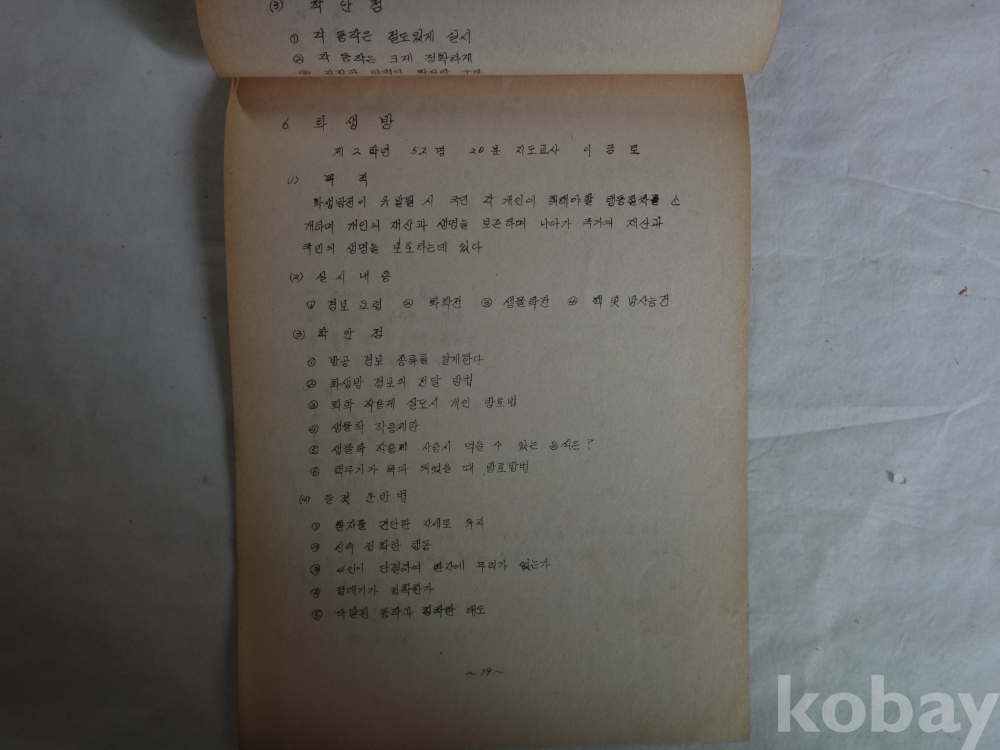 (3) 착 안 점
① 각 동작은 절도있게 실시
② 각 동작은 크게 정확하게
6 화 생 방
제 2 학년 52명 20분 지도교사 이 종 로
(1) 목 적
화생방전이 유발될 시 국민 각 개인이 취해야할 행동절차를 소
개하여 개인의 재산과 생명을 보존하며 나아가 국가의 재산과
국민의 생명을 보호하는데 있다
(2) 실 시 내 용
① 경보 요령 ② 화학전 ③ 생물학전 ④ 핵 및 방사능전
(3) 착 안 점
① 방공 경보 종류를 알게한다
② 화생방 경보의 전달 방법
③ 화학 작용제 살포시 개인 방호법
④ 생물학 작용제란
⑤ 생물학 작용제 사용시 먹을 수 있는 음식은?
⑥ 핵무기가 폭파 되었을 때 방호방법
(4) 들것 운반법
① 환자를 편안한 자세로 유지
② 신속 정확한 행동
③ 4인이 단결하여 환자에 무리가 없는가
④ 할매기가 정확한가
⑤ 숙달된 동작과 침착한 태도
~19~
kobay